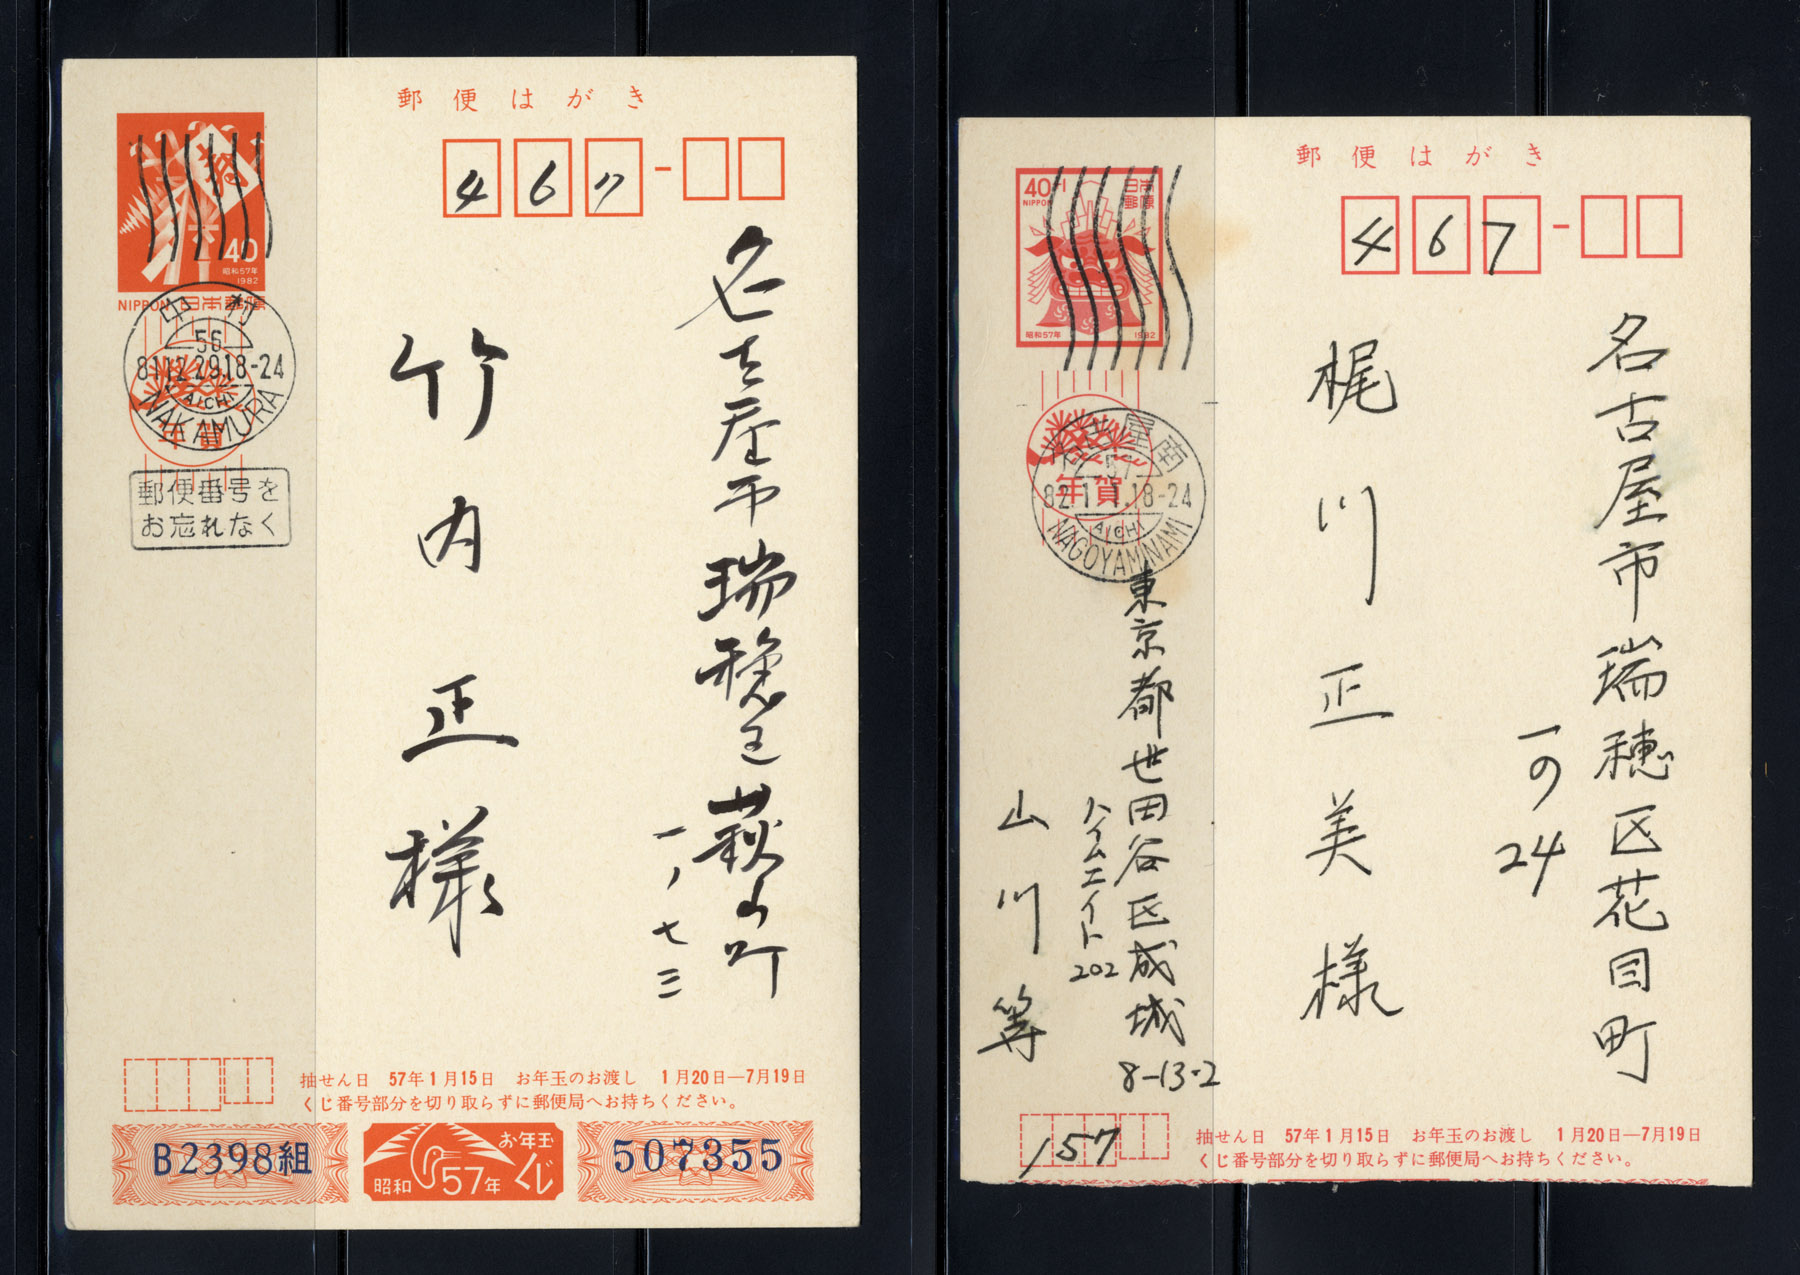 郵便はがき
寿
40
昭和57年
1982
NIPPON 日本郵便
467
中村
56
81 12.29.18-24
AICHI
NAKAMURA
年賀
郵便番号を
お忘れなく
名古屋市瑞穂区萩山町
一ノ七三
竹内正様
抽せん日 57年1月15日 お年玉のお渡し 1月20日—7月19日
くじ番号部分を切り取らずに郵便局へお持ちください。
B2398組
お年玉
くじ
昭和57年
507355
郵便はがき
40
NIPPON
日本郵便
昭和57年
1982
467
名古屋南
57
82.1.1.18-24
AICHI
NAGOYAMINAMI
年賀
名古屋市瑞穂区花目町
一の24
梶川正美様
東京都世田谷区成城
8-13-2
ハイムエイト202
山川等
157
抽せん日 57年1月15日 お年玉のお渡し 1月20日—7月19日
くじ番号部分を切り取らずに郵便局へお持ちください。